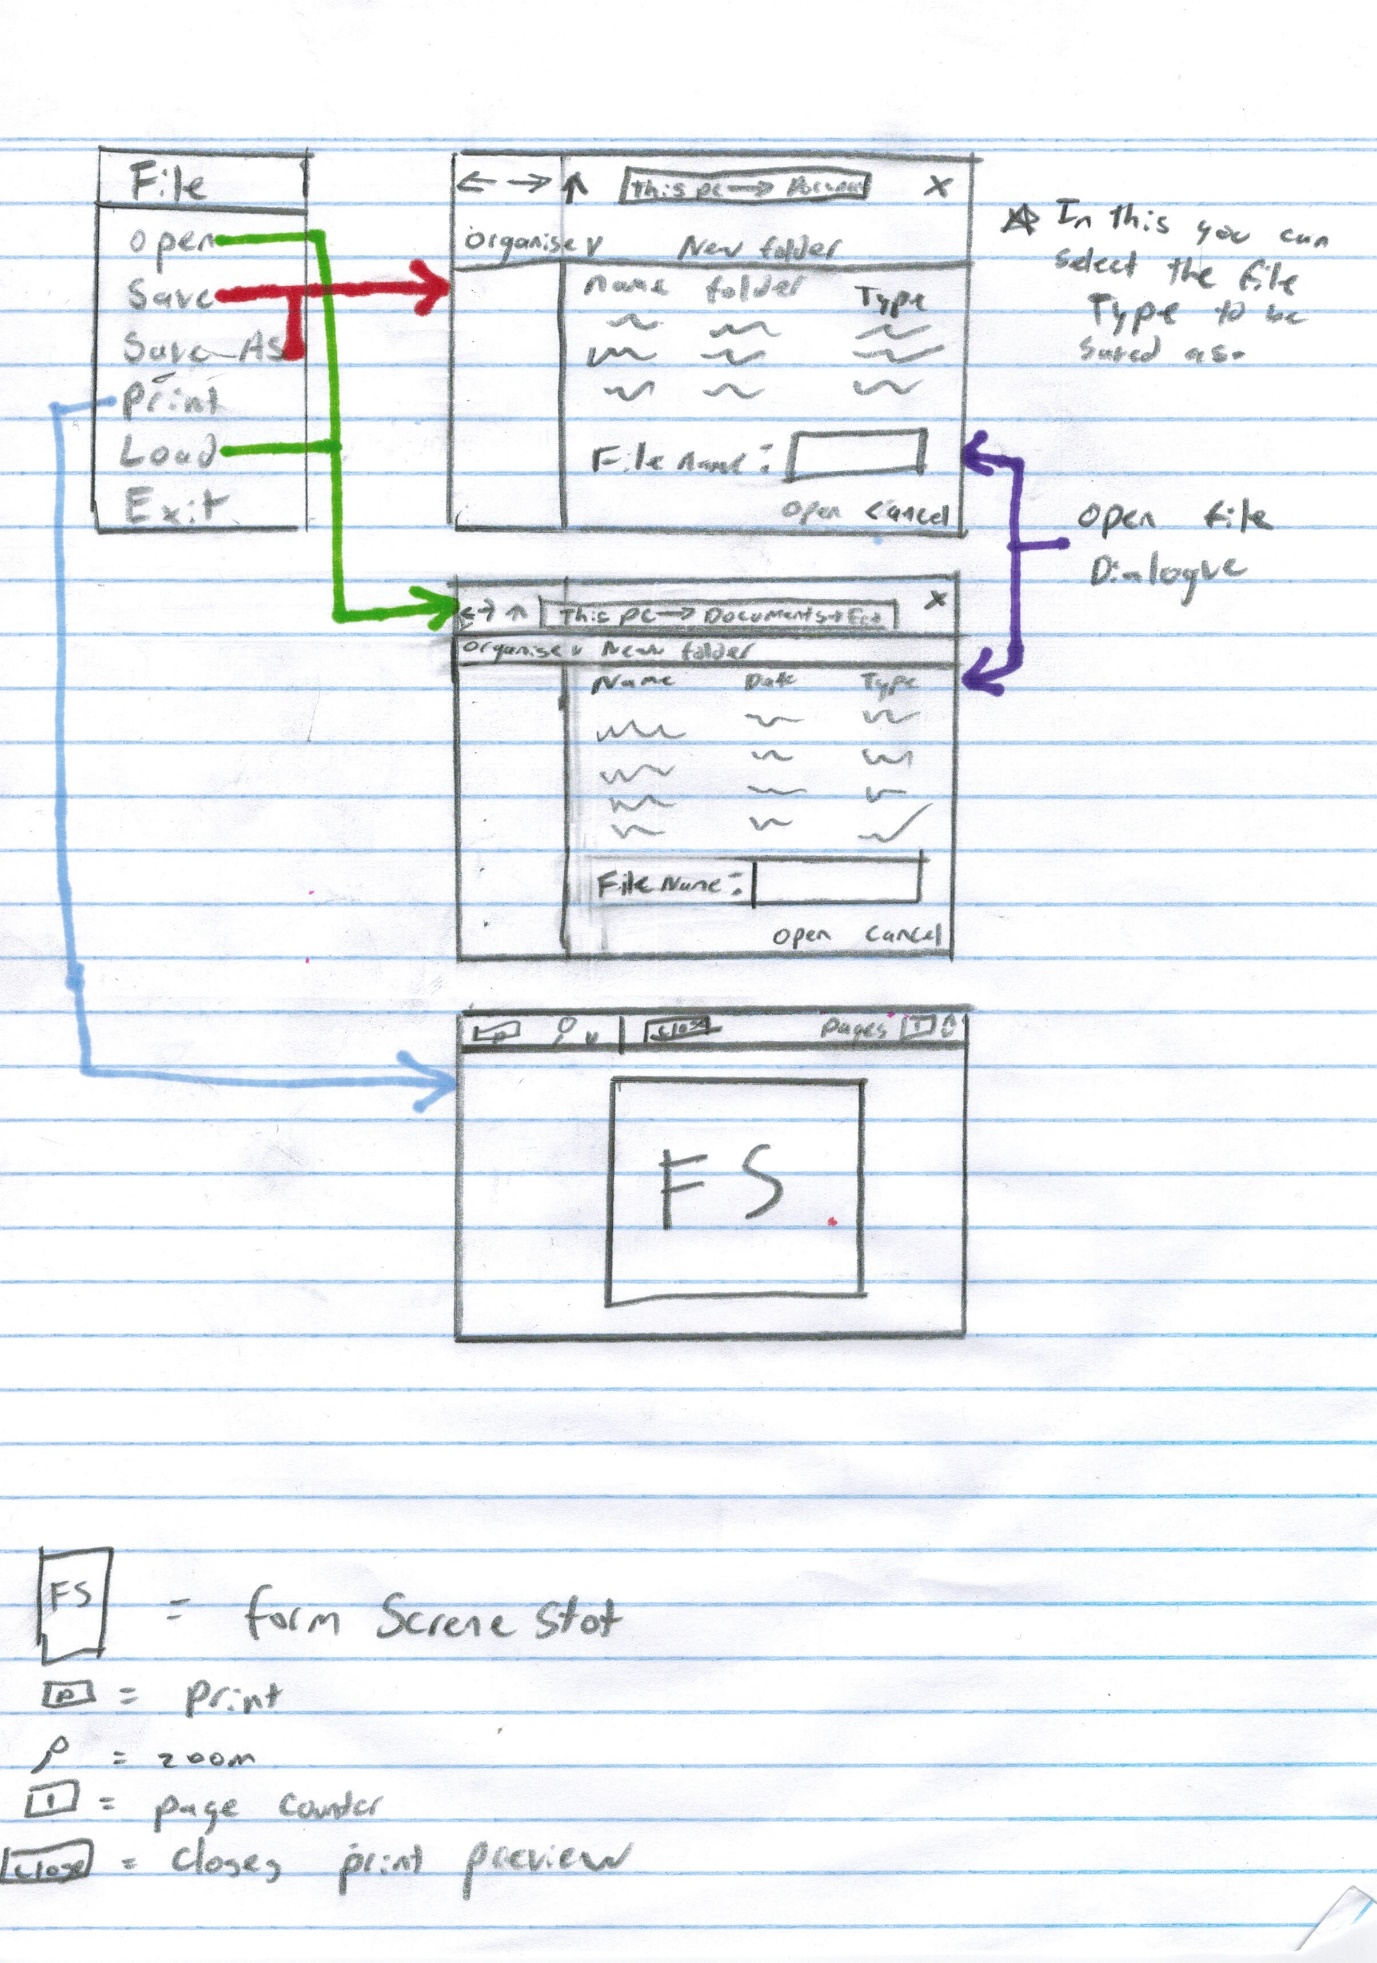 File
open
Save
Save As
Print
Load
Exit
This pc → Documen
X
organise v New folder
Name folder Type
File name :
open cancel
In this you can
select the file
Type to be
saved as.
open file
Dialogue
This pc → Documents → Ect
X
organise v New folder
Name Date Type
File Name :
open cancel
P
close
pages 1
FS
FS = form Screne Stot
P = print
= zoom
1 = page counter
close = closes print preview